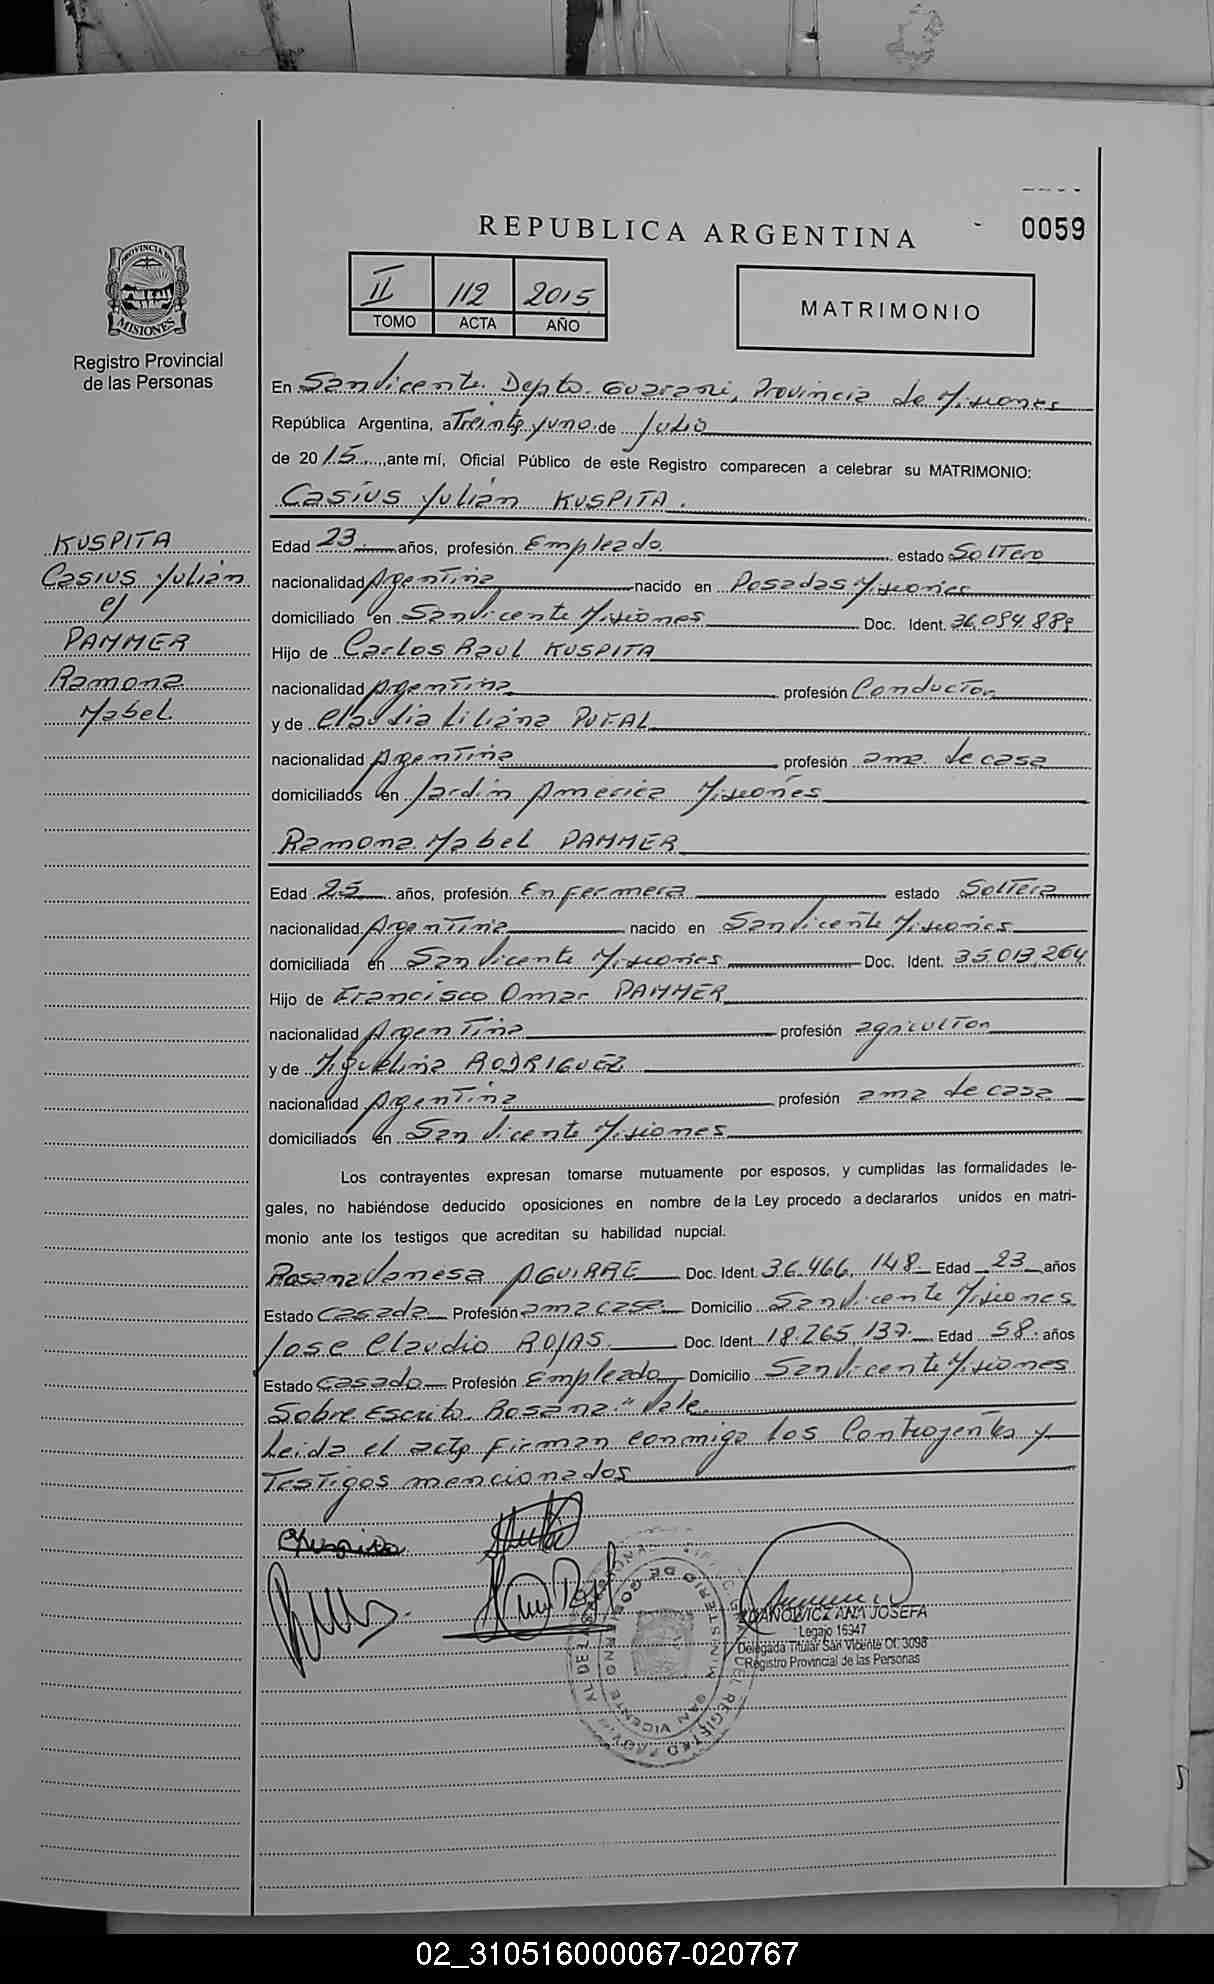 0059
REPUBLICA ARGENTINA
II 112 2015
TOMO ACTA AÑO
MATRIMONIO
PROVINCIA DE MISIONES
Registro Provincial
de las Personas
KUSPITA
Casius Yulián
c/
PAMMER
Ramona
Mabel
En San Vicente. Depto. Guaraní, Provincia de Misiones
República Argentina, a Treinta y uno de Julio
de 2015, ante mí, Oficial Público de este Registro comparecen a celebrar su MATRIMONIO:
Casíus Yulián KUSPITA.
Edad 23 años, profesión Empleado estado Soltero
nacionalidad Argentina nacido en Posadas Misiones
domiciliado en San Vicente Misiones Doc. Ident. 36.094.889
Hijo de Carlos Raul KUSPITA
nacionalidad Argentina profesión Conductor
y de Claudia Liliana PUFAL
nacionalidad Argentina profesión ama de casa
domiciliados en Jardin America Misiones
Ramona Mabel PAMMER
Edad 25 años, profesión Enfermera estado Soltera
nacionalidad Argentina nacido en San Vicente Misiones
domiciliada en San Vicente Misiones Doc. Ident. 35.013.264
Hijo de Francisco Omar PAMMER
nacionalidad Argentina profesión agricultor
y de Miguelina RODRIGUEZ
nacionalidad Argentina profesión ama de casa
domiciliados en San Vicente Misiones
Los contrayentes expresan tomarse mutuamente por esposos, y cumplidas las formalidades le-
gales, no habiéndose deducido oposiciones en nombre de la Ley procedo a declararlos unidos en matri-
monio ante los testigos que acreditan su habilidad nupcial.
Rosana Vanesa AGUIRRE Doc. Ident. 36.466.148 Edad 23 años
Estado Casada Profesión ama casa Domicilio San Vicente Misiones
Jose Claudio ROJAS Doc. Ident. 18.265.137 Edad 58 años
Estado Casado Profesión Empleado Domicilio San Vicente Misiones
Sobre Escrito. Rosana" Vale
Leida el acta firman conmigo los Contrayentes y
Testigos mencionados
ANA JOSEFA
Legajo 16947
Delegada Titular San Vicente Of. 3098
Registro Provincial de las Personas
02_310516000067-020767